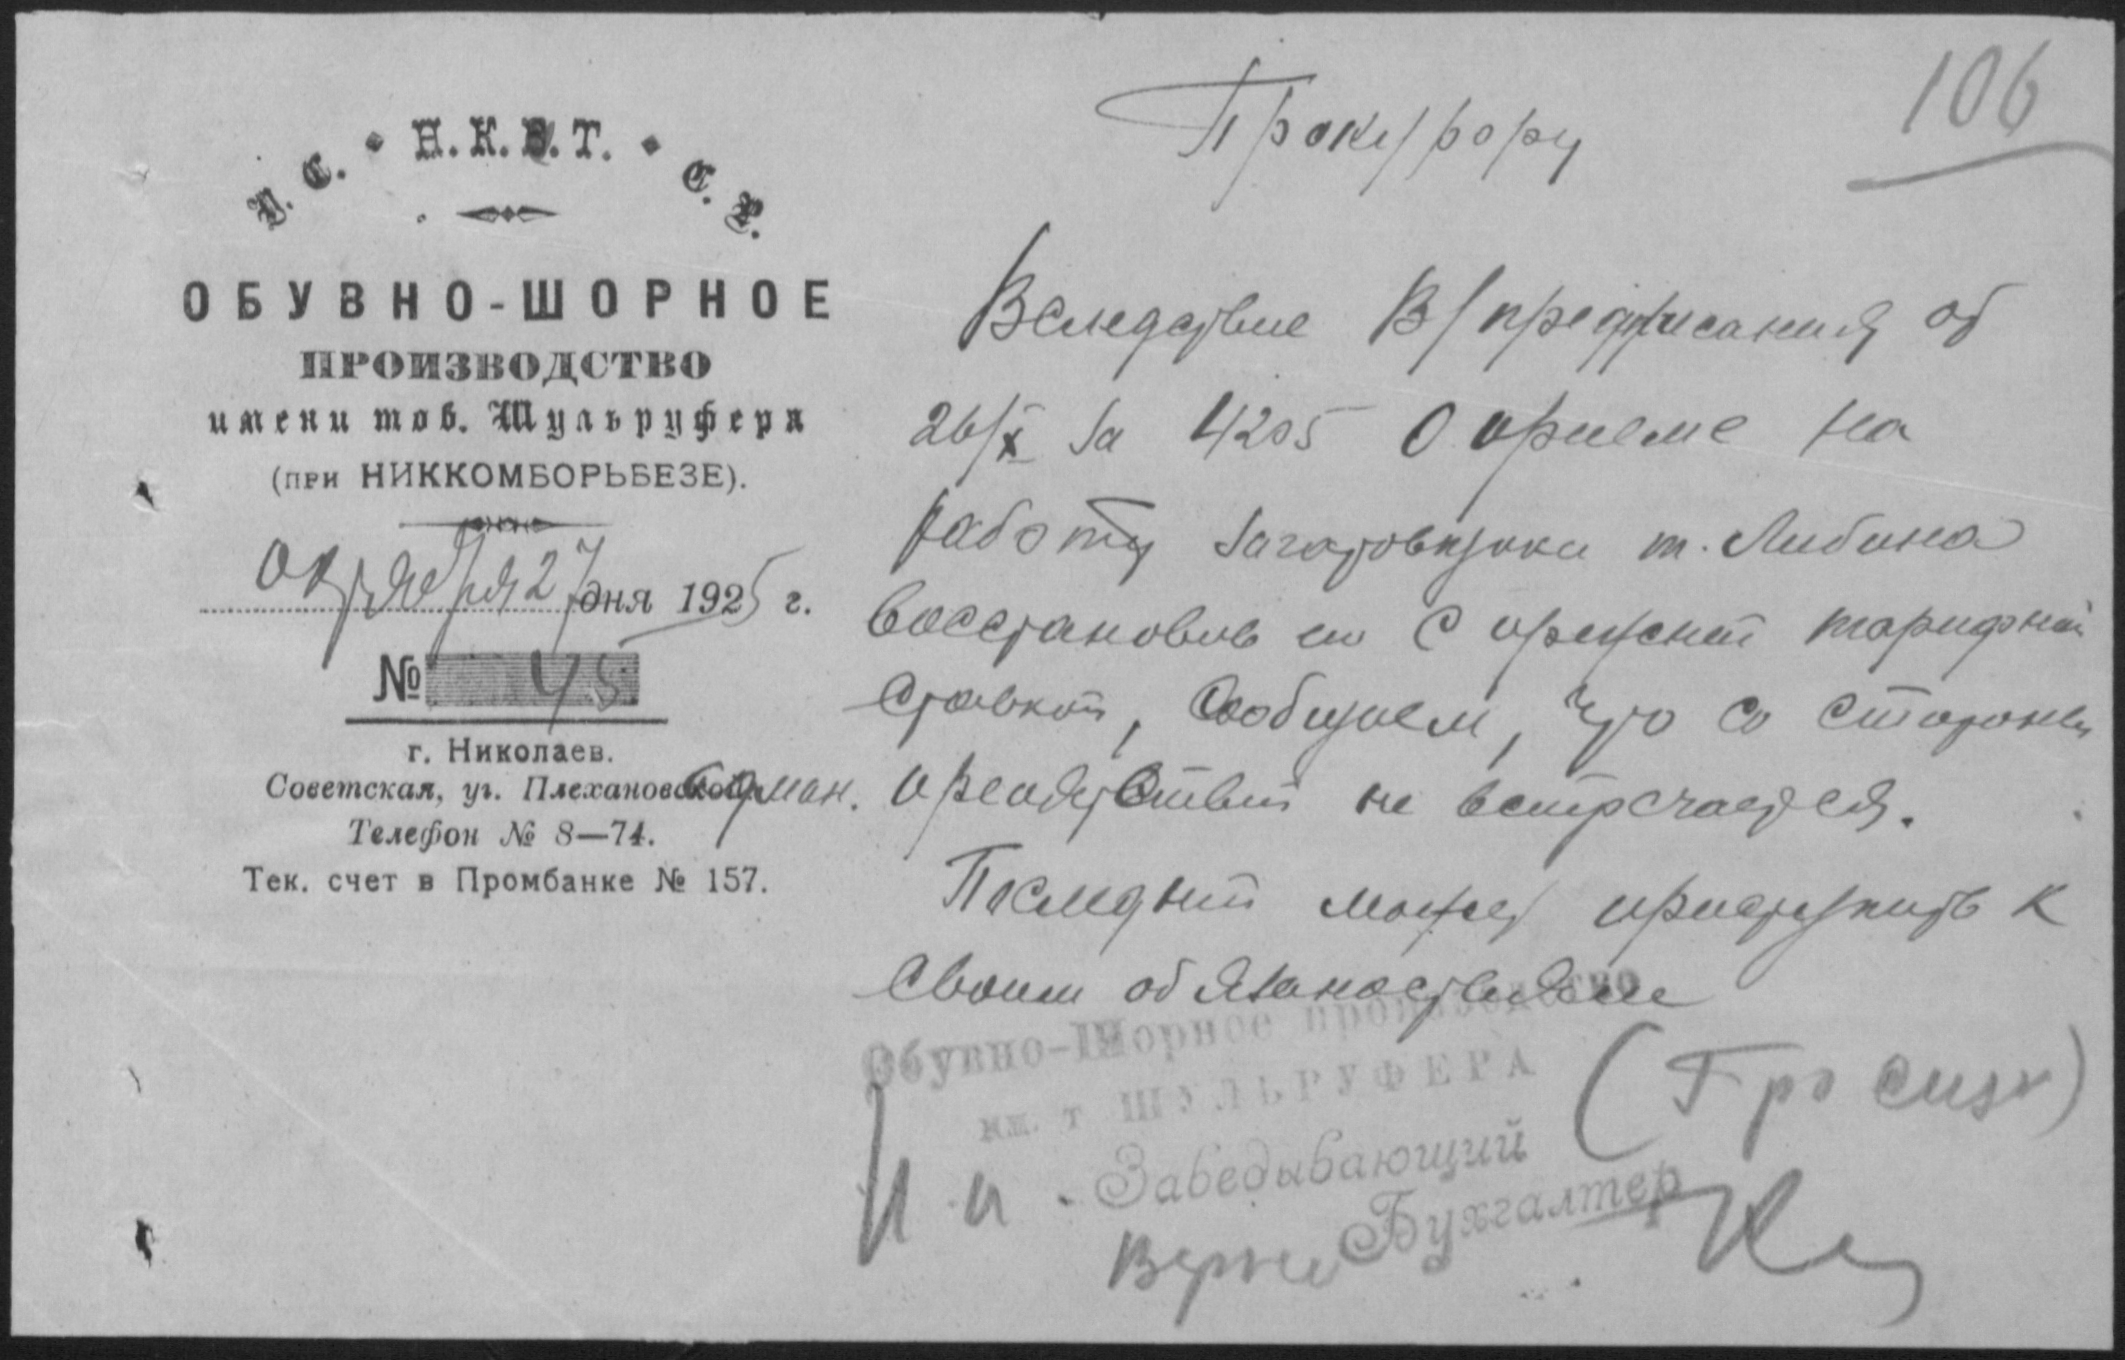 106
У. С. • Н.К.В.Т. • С. Р.
ОБУВНО-ШОРНОЕ
ПРОИЗВОДСТВО
имени тов. Шульруфера
(ПРИ НИККОМБОРЬБЕЗЕ).
октября 27 дня 1925 г.
№ 45
г. Николаев.
Советская, уг. Плехановской
Телефон № 8—74.
Тек. счет в Промбанке № 157.
Прокурору
Вследствие В/предписания от
26/X За 4205 О приеме на
работу Заготовщика т. Либина
восстановив его с прежней тарифной
ставкой, Сообщаем, что со стороны
препятствий не встречается.
Последний может приступить к
своим обязаностям
Обувно-Шорное производство
им. т ШУЛЬРУФЕРА
Заведывающий
Бухгалтер
Верно